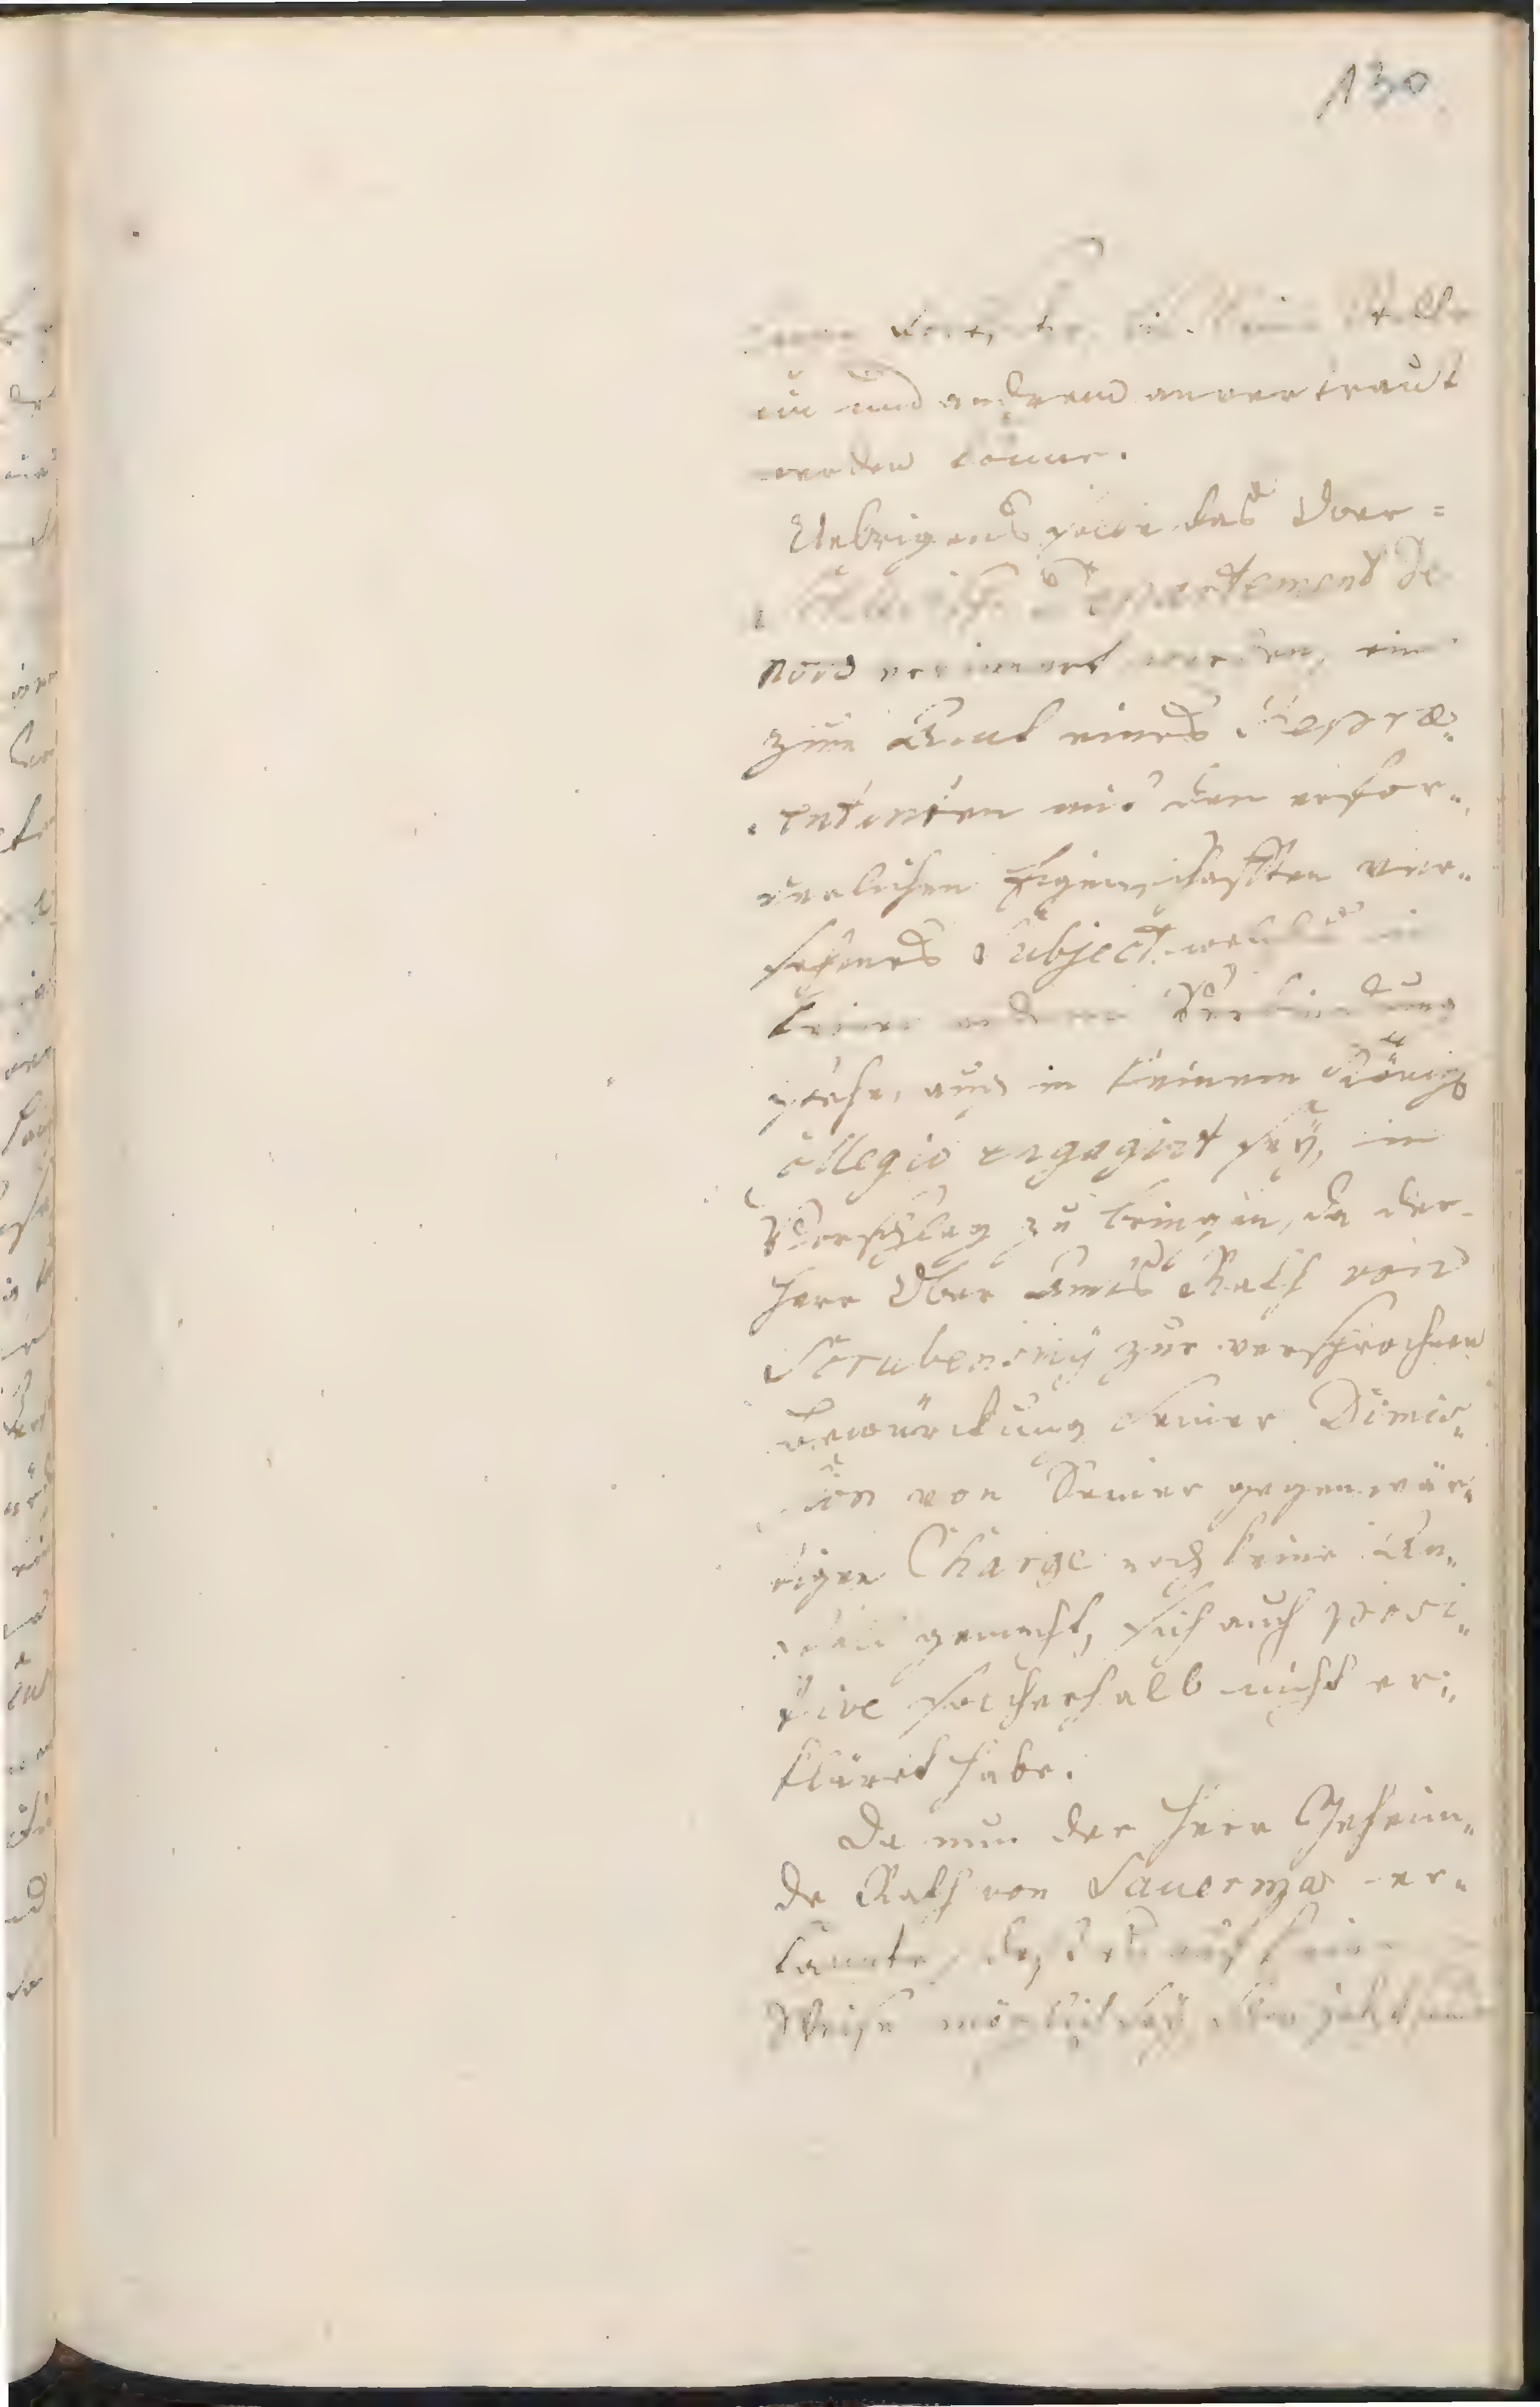 130
ein und andrend anvertraut
werden könne.
Uebrigens das Vor=
Departement de
novo ein
zum Amt eines Repræ„
sentanten mit den erfor„
derlichen Eigenschafften ver„
sehenes Subject welches in
keiner andern Verbindung
stehe, auch in keinem Königl
Collegio engagirt sey, in
Vorschlag zu bringen, da der
Herr Ober Amts Rath von
Strubensky zur versprochnen
Bewürckung seiner Dimis„
sion von Seiner gegenwär„
tigen Charge noch keine An„
stalt gemacht, sich auch posi„
tive solcherhalb nicht er„
kläret habe.
Da nun der Herr Geheim„
de Rath von Sauerma er„
kannte, daß
Weise möglich